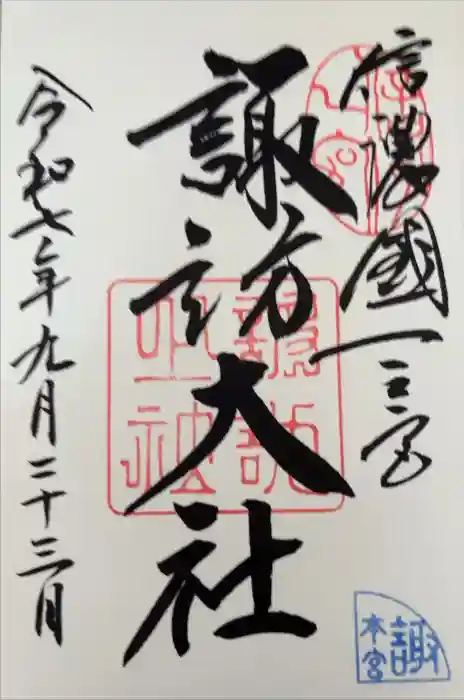 信濃國一之宮
諏訪大社
令和七年九月二十三日
諏
本宮